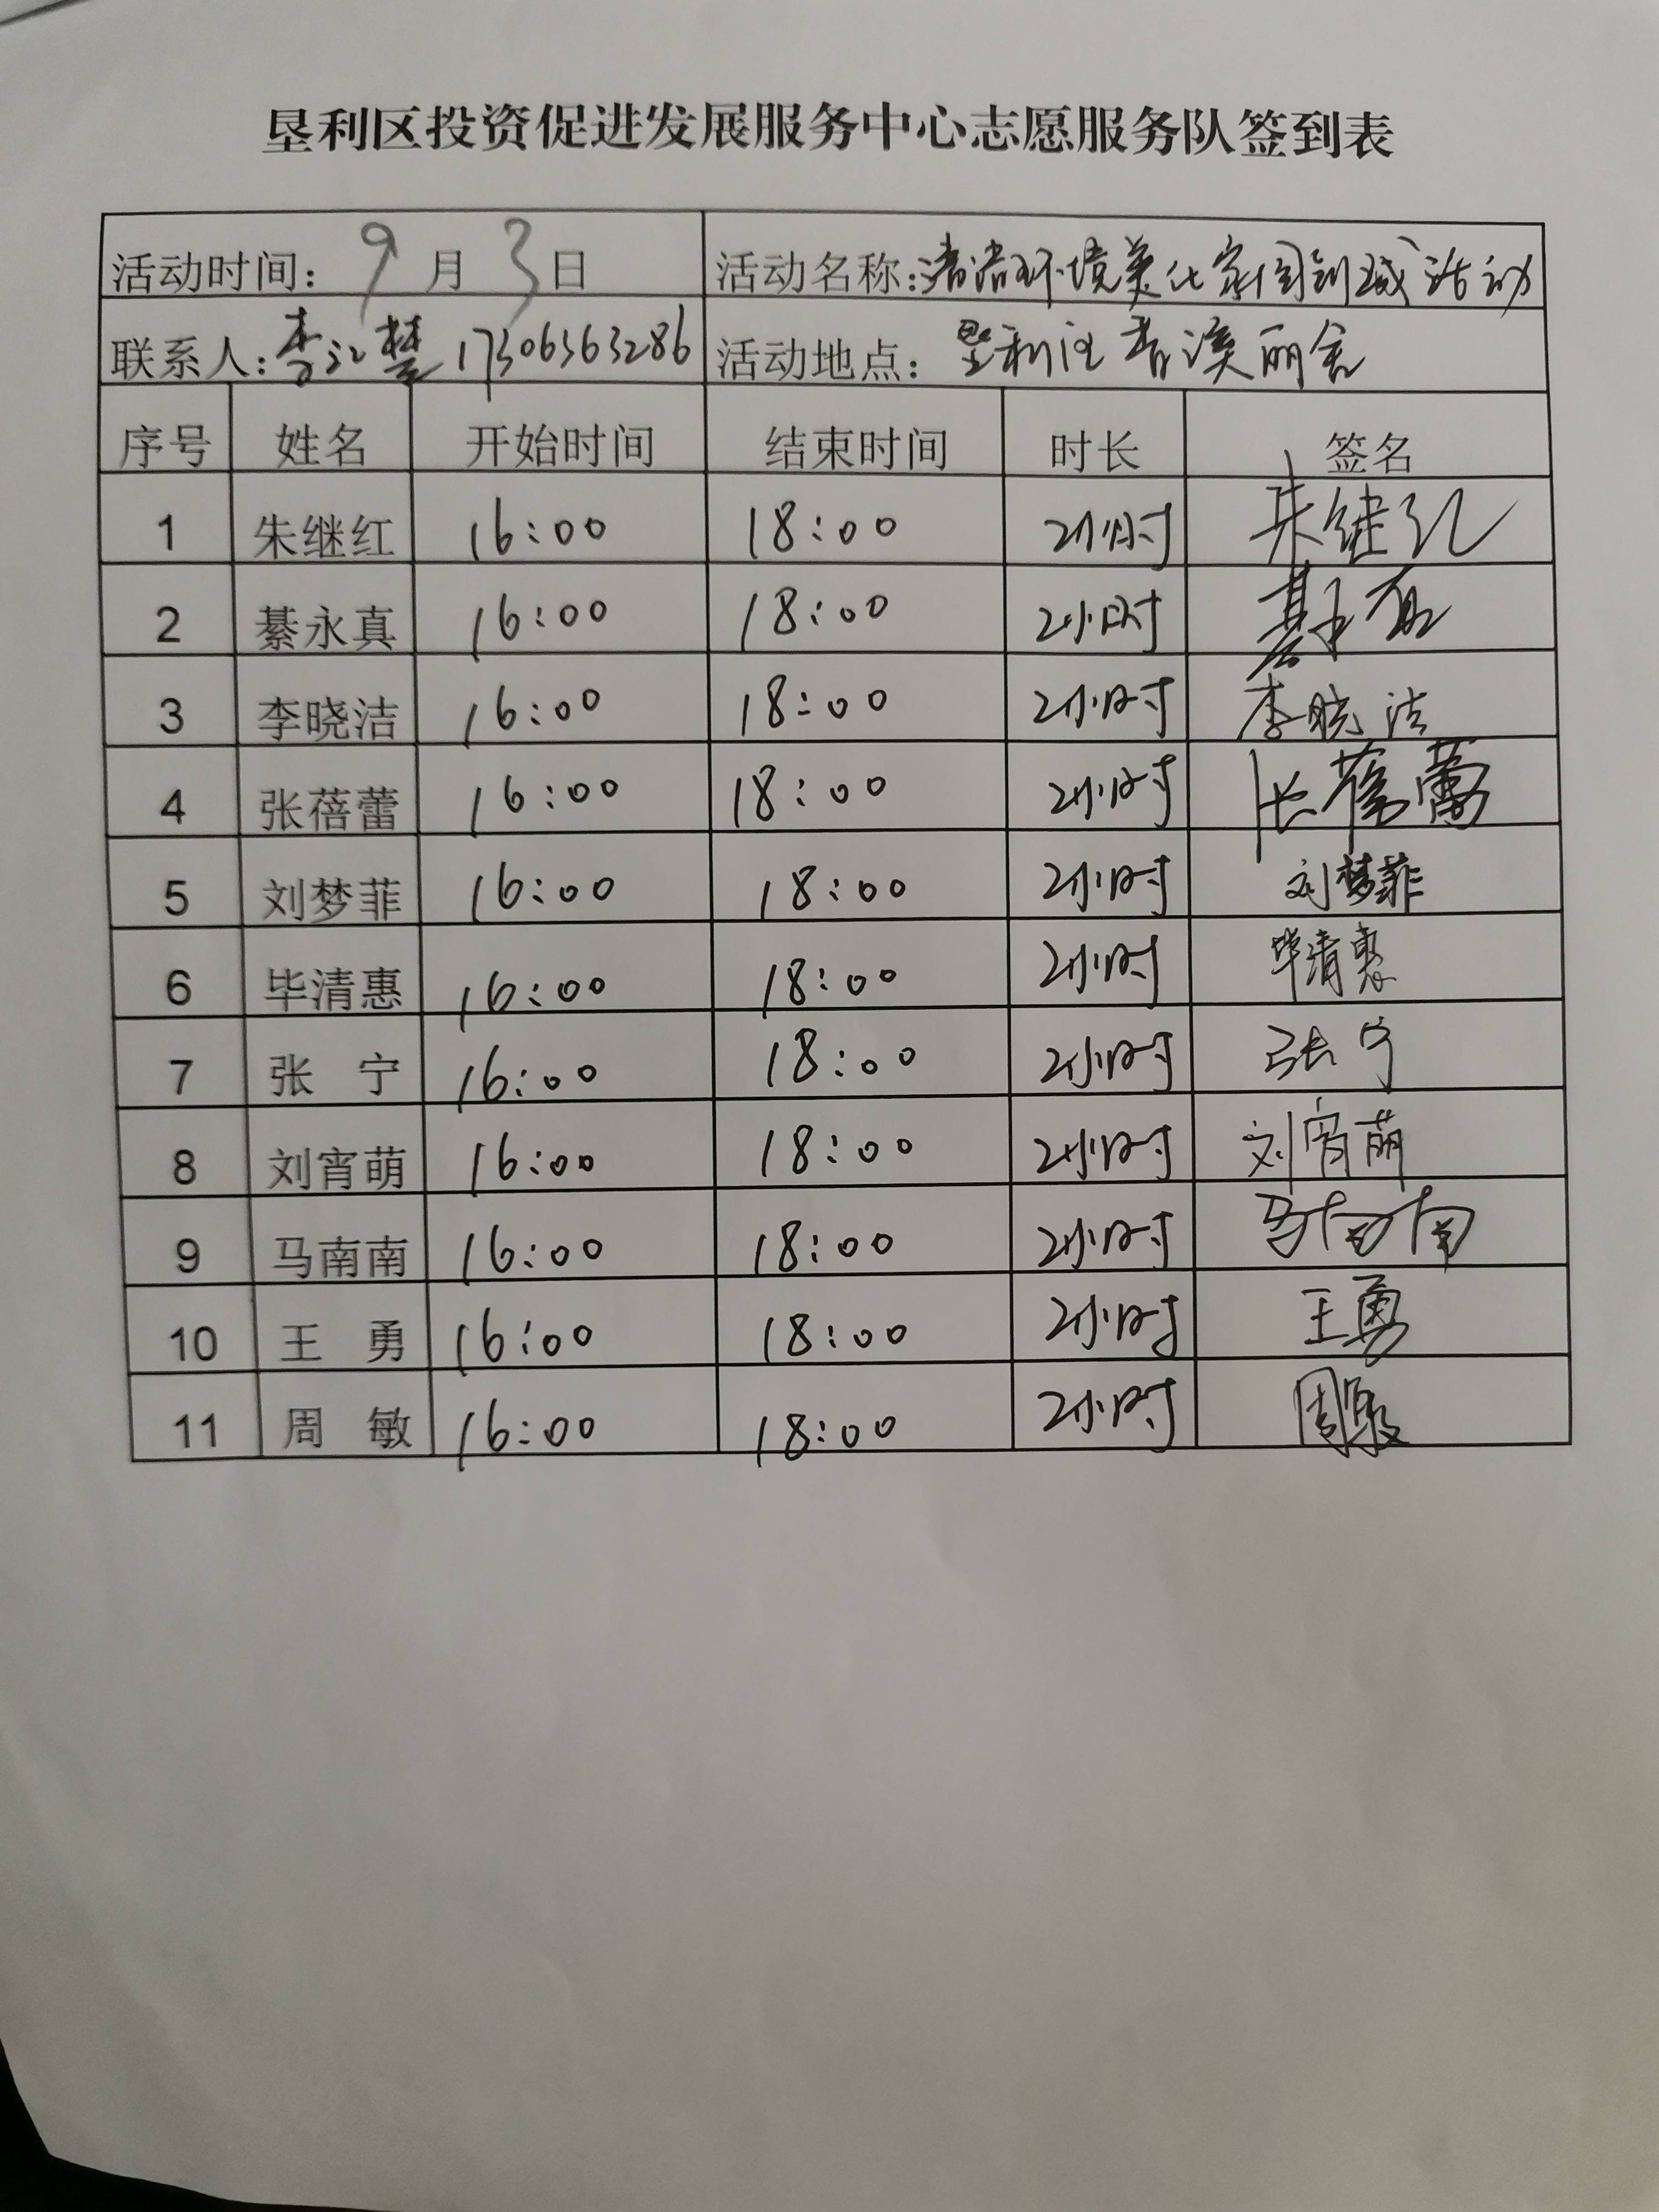 垦利区投资促进发展服务中心志愿服务队签到表
活动时间： 9 月 3 日 活动名称：清洁环境美化家园创城活动
联系人：李 17306363286 活动地点：垦利 香溪丽舍
序号 姓名 开始时间 结束时间 时长 签名
1 朱继红 16:00 18:00 2小时 朱继红
2 綦永真 16:00 18:00 2小时 綦永真
3 李晓洁 16:00 18:00 2小时 李晓洁
4 张蓓蕾 16:00 18:00 2小时 张蓓蕾
5 刘梦菲 16:00 18:00 2小时 刘梦菲
6 毕清惠 16:00 18:00 2小时 毕清惠
7 张 宁 16:00 18:00 2小时 张宁
8 刘宵萌 16:00 18:00 2小时 刘宵萌
9 马南南 16:00 18:00 2小时 马南南
10 王 勇 16:00 18:00 2小时 王勇
11 周 敏 16:00 18:00 2小时 周敏